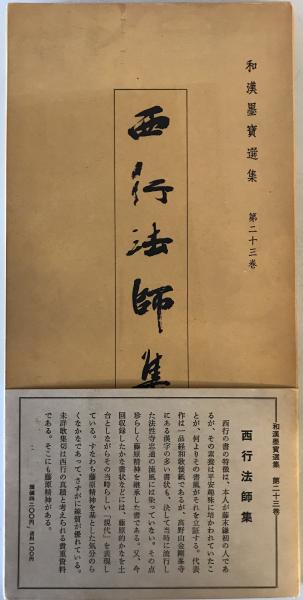 和漢墨寶選集 第二十三巻
西行法師集
和漢墨寶選集 第二十三巻
西行法師集
西行の書の特徴は、本人が幕末鎌初の人であ
るが、その素養は平安趣味に培かわれていたこ
とが、何よりその書風がそれを立証する。代表
作は一品経和歌懐紙であるが、高野山金剛峯寺
にある漢字の多い書状も、決して当時に流行し
た法性寺忠通の流風には張っていない。その点
珍らしく藤原精神を継承した書である。又、今
回収録したかな書状などには、藤原的かなを土
台としながらその当時らしい「現代」を表現し
ている。すなわち藤原精神を基とした気分のら
くなかなであって、さすがに線質が優れている。
未詳歌集切は西行の真蹟と考えられる貴重資料
である。そこにも藤原精神がある。
頒価四二〇〇円 送料一〇〇円